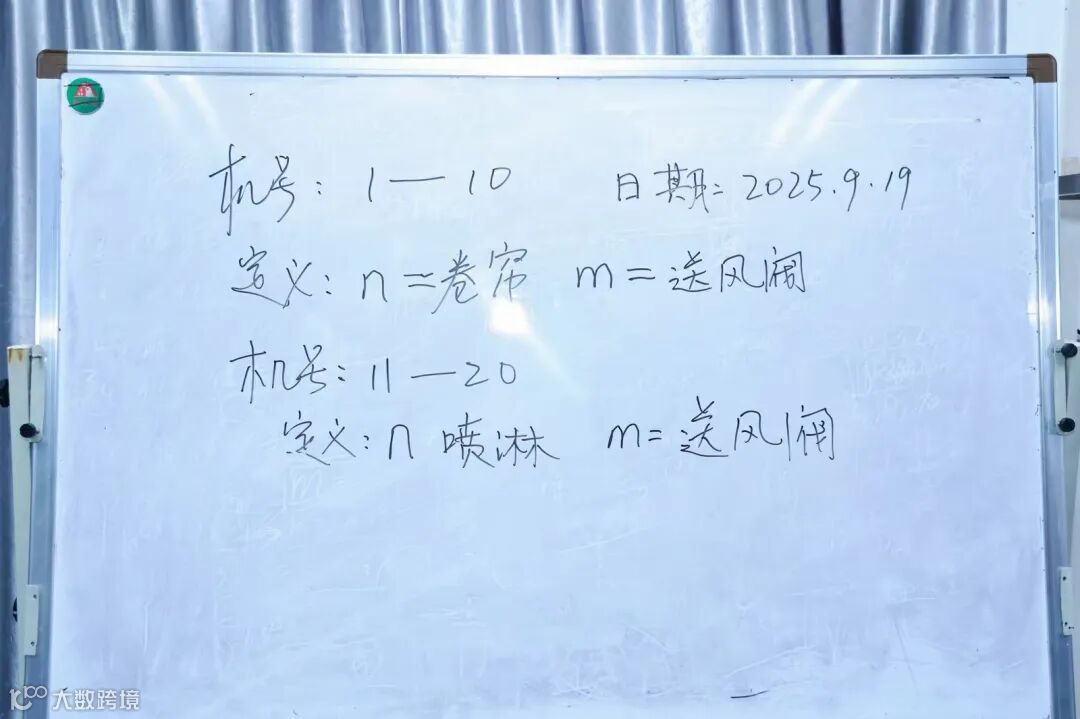 机号: 1—10 日期: 2025.9.19
定义: n=卷帘 m=送风阀
机号: 11—20
定义: n 喷淋 m=送风阀
大数跨境